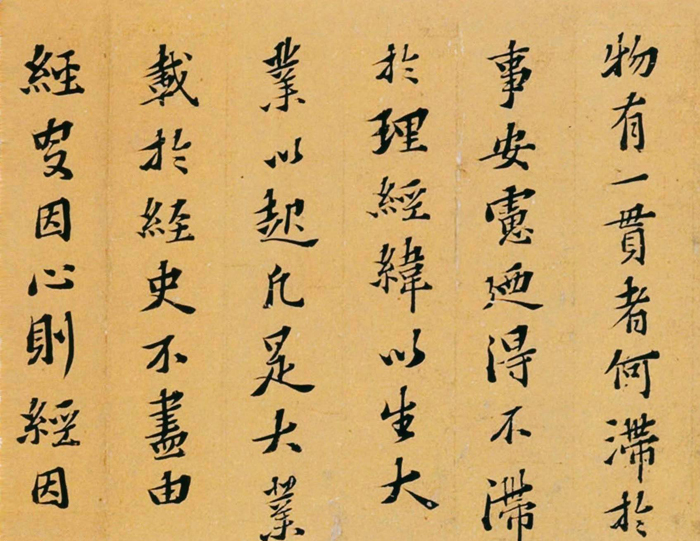 物有一貫者何滯於
事安慮迺得不滯
於理經緯以生大
業以起凡是大業
載於経史不盡由
經史因心則經因